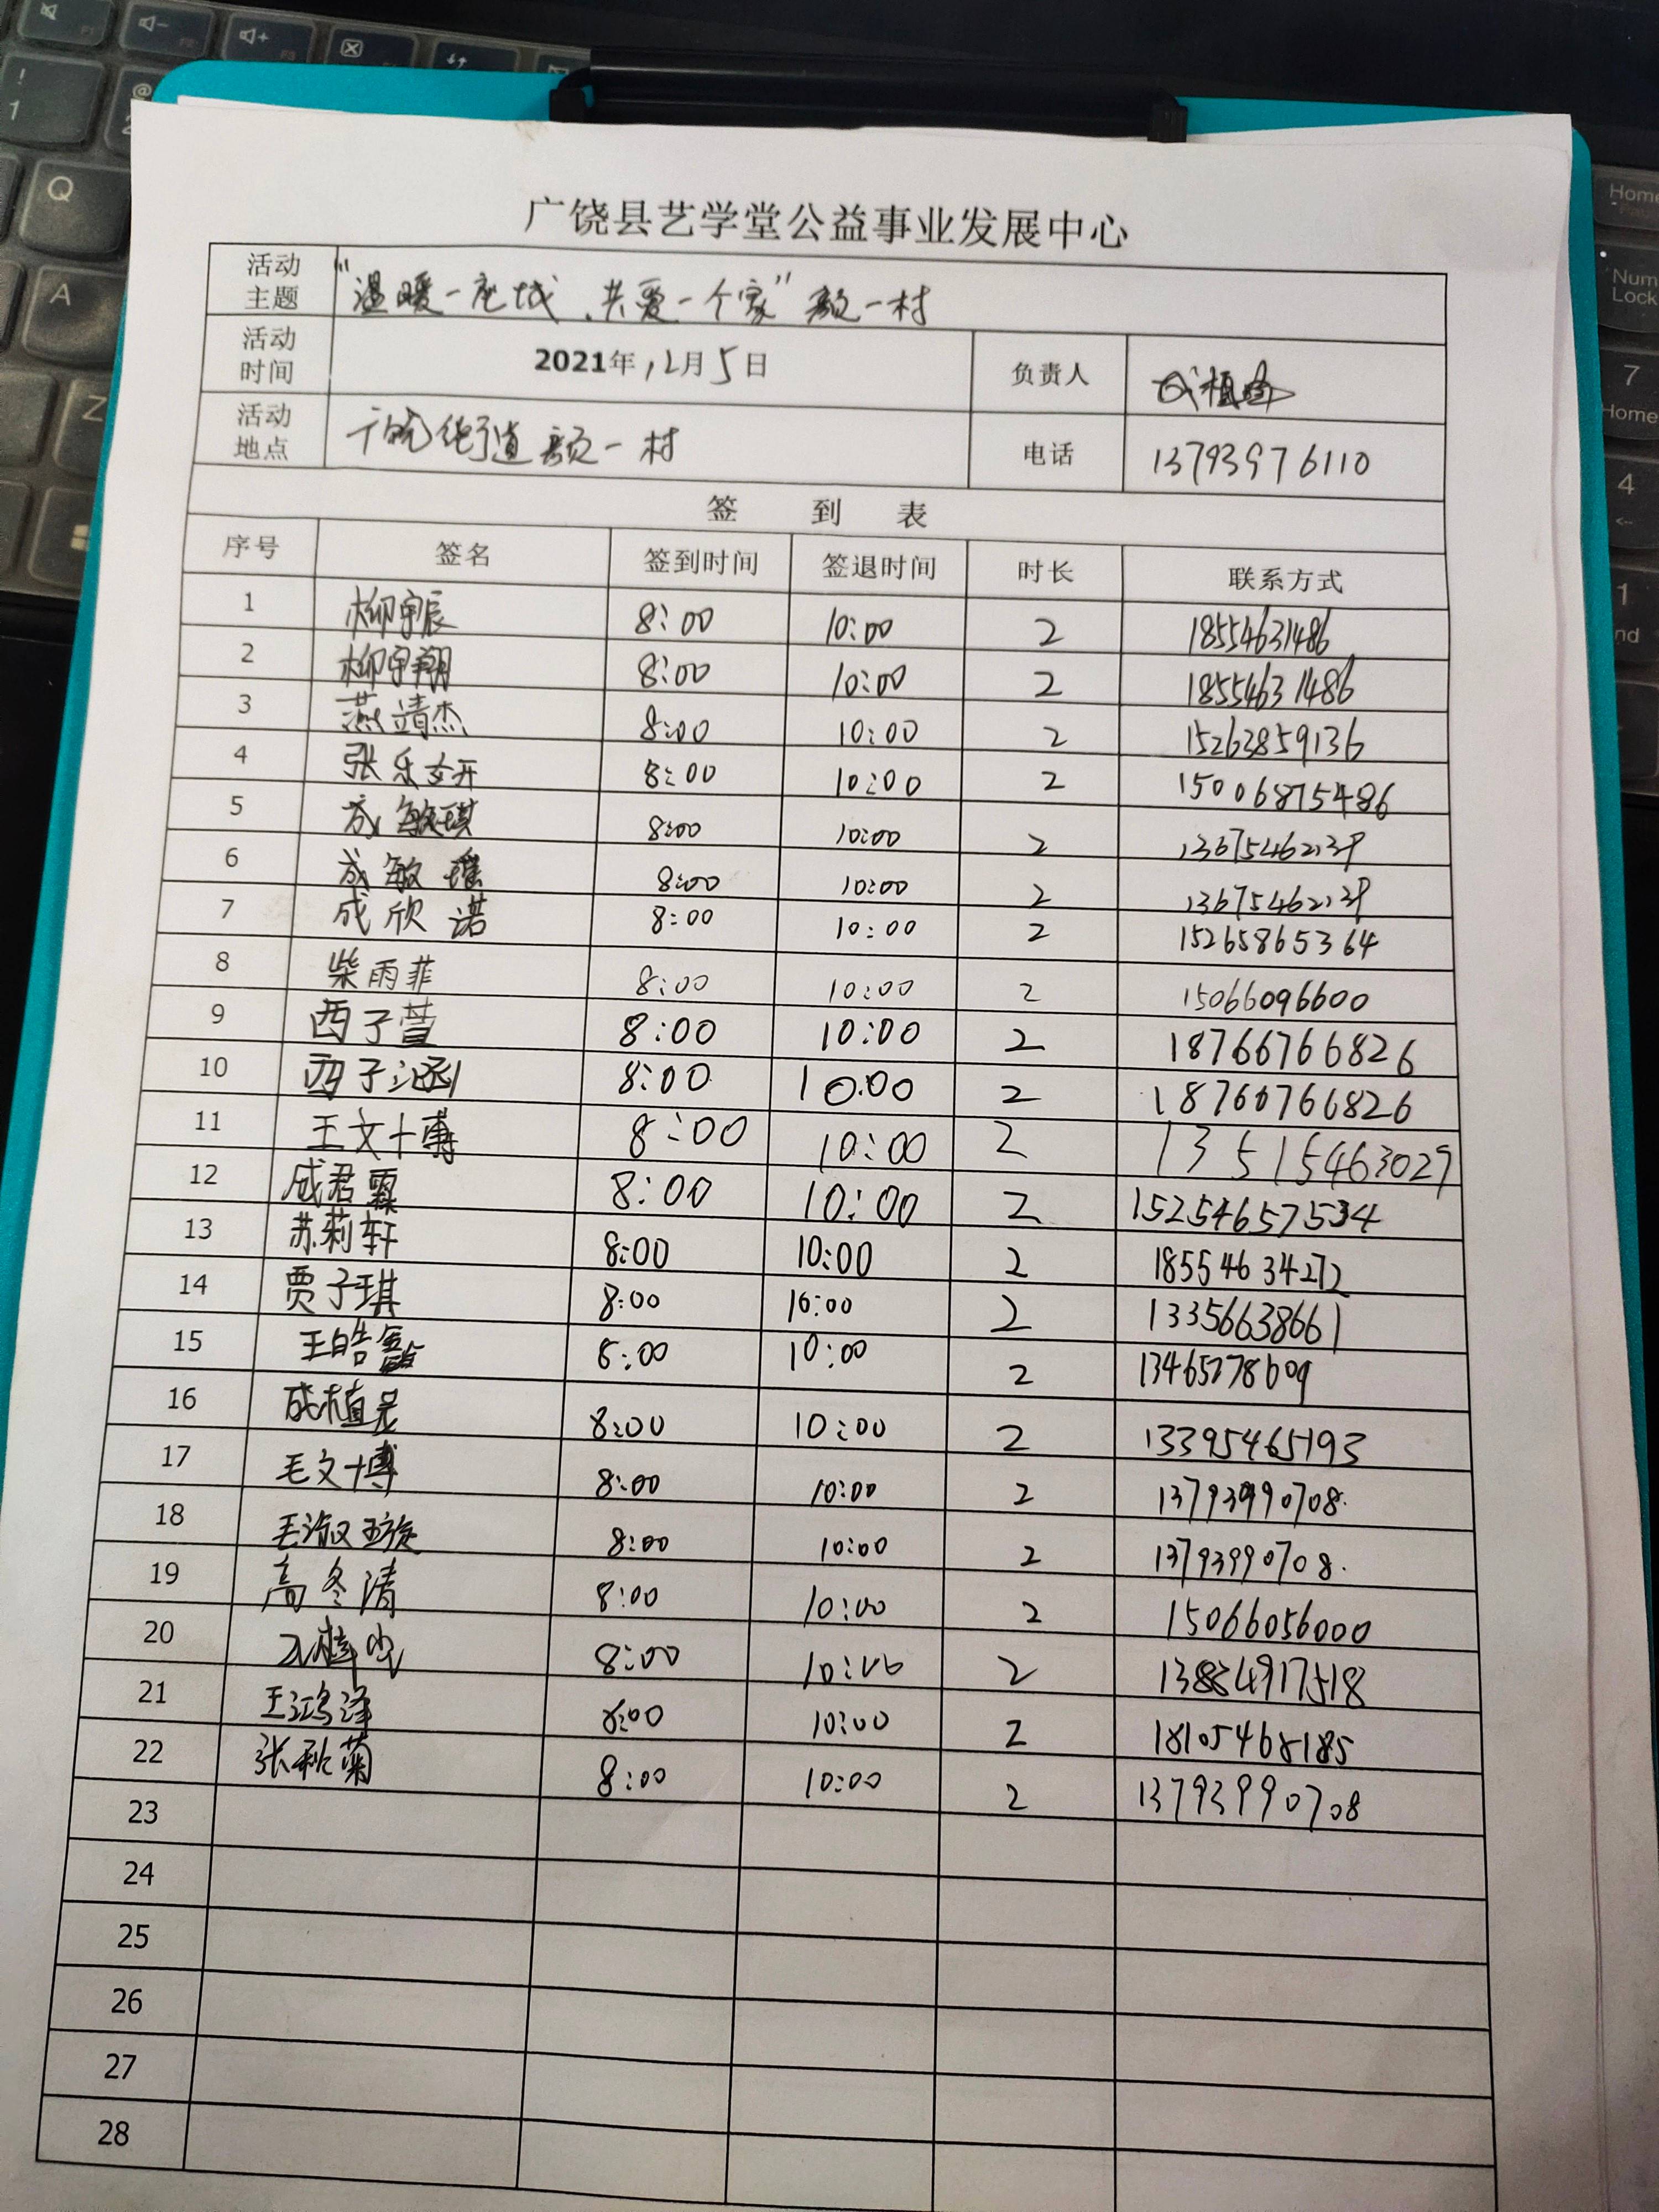 广饶县艺学堂公益事业发展中心
活动主题 "温暖一座城、共爱一个家" 颜一村
活动时间 2021年12月5日 负责人
活动地点 广饶街道颜一村 电话 13793976110
签 到 表
序号 签名 签到时间 签退时间 时长 联系方式
1 柳宇辰 8:00 10:00 2 18554631486
2 柳宇翔 8:00 10:00 2 18554631486
3 燕靖杰 8:00 10:00 2 15263859136
4 张乐妍 8:00 10:00 2 15006875486
5 成敏琪 8:00 10:00 2 13675462139
6 成敏瑶 8:00 10:00 2 13675462139
7 成欣诺 8:00 10:00 2 15265865364
8 柴雨菲 8:00 10:00 2 15066096600
9 西子萱 8:00 10:00 2 18766766826
10 西子涵 8:00 10:00 2 18766766826
11 王文博 8:00 10:00 2 13515463029
12 成君霖 8:00 10:00 2 15254657534
13 苏莉轩 8:00 10:00 2 18554634272
14 贾子琪 8:00 10:00 2 13356638661
15 王皓 8:00 10:00 2 13465278609
16 成植 8:00 10:00 2 13395465193
17 毛文博 8:00 10:00 2 13793990708
18 毛淑璇 8:00 10:00 2 13793990708
19 高冬清 8:00 10:00 2 15066056000
20 8:00 10:00 2 13884917518
21 王鸿泽 8:00 10:00 2 18105468185
22 张秋菊 8:00 10:00 2 13793990708
23
24
25
26
27
28